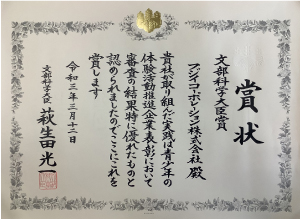 賞状
文部科学大臣賞
フジイコーポレーション株式会社 殿
貴社が取り組んだ実践は青少年の
体験活動推進企業表彰において
審査の結果特に優れたものと
認められましたのでここにこれを
賞します
令和三年三月十二日
文部科学大臣 萩生田光一